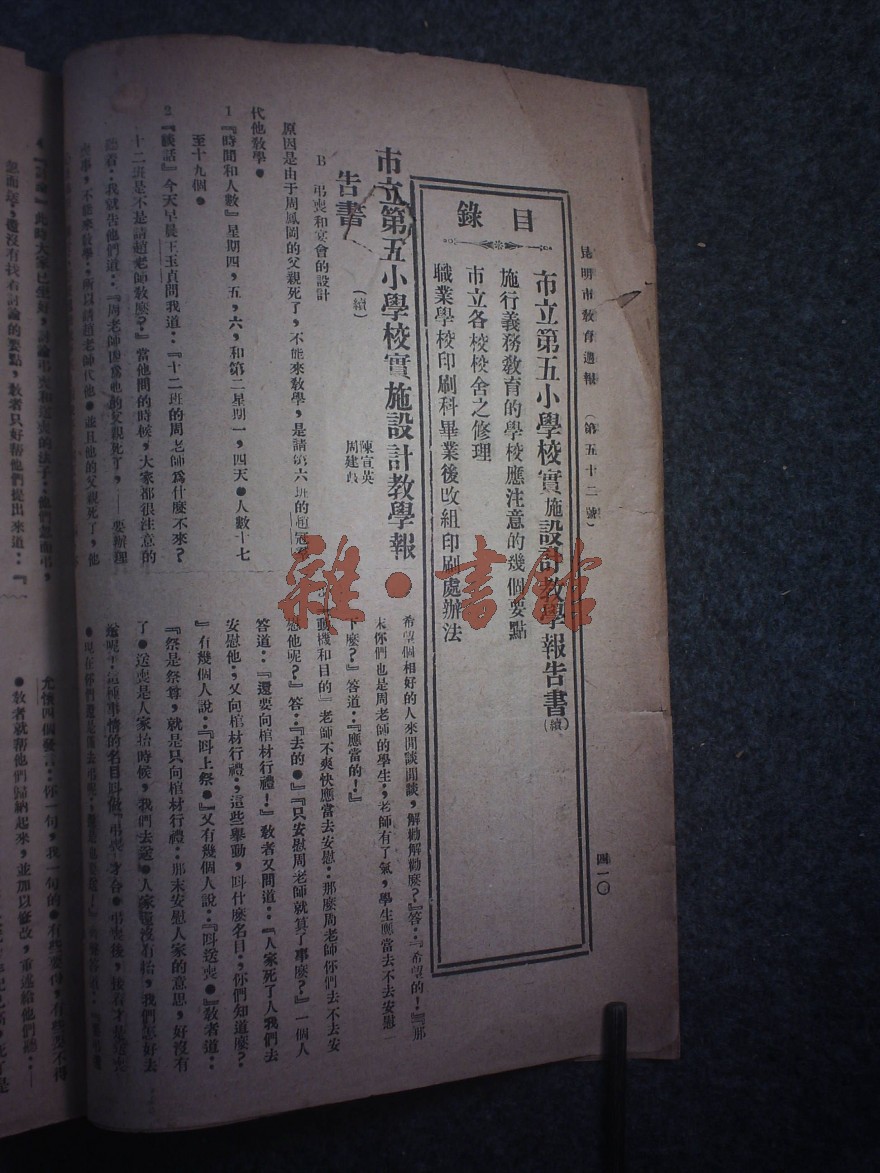 昆明市敎育週報　（第五十二號）　四一〇
目錄
市立第五小學校實施設計敎學報告書（續）
施行義務敎育的學校應注意的幾個要點
市立各校校舍之修理
職業學校印刷科畢業後改組印刷處辦法
市立第五小學校實施設計敎學報
告書（續）
陳宣英
周建
B 弔喪和宴會的設計
原因是由于周鳳岡的父親死了，不能來敎學，是請第六班的趙冠
代他敎學●
1『時間和人數』星期四，五，六，和第二星期一，四天●人數十七
至十九個●
2『談話』今天早晨王玉貞問我道：『十二班的周老師爲什麼不來？
十二班是不是請趙老師敎麼？』當他問的時候，大家都很注意的
聽着：我就告他們道：『周老師因爲他的父親死了，——要辦理
喪事，不能來敎學：所以請趙老師代他●並且他的父親死了，他
希望個相好的人來閒談閒談，解勸解勸麼？』答：『希望的！』『那
末你們也是周老師的學生；老師有了氣，學生應當去不去安慰一
下麼？』答道：『應當的！』
動機和目的『老師不爽快應當去安慰：那麼周老師你們去不去安
慰他呢？』答：『去的●』『只安慰周老師就算了事麼？』一個人
答道：『還要向棺材行禮！』敎者又問道：『人家死了人我們去
安慰他；又向棺材行禮；這些舉動，叫什麼名目；你們知道麼？
』有幾個人說：『叫上祭●』又有幾個人說：『叫送喪●』敎者道：
『祭是祭尊，就是只向棺材行禮：那末安慰人家的意思，好沒有
了●送喪是人家抬時候，我們去送●人家還沒有抬，我們怎好去
送呢！這種事情的名目叫做『弔喪』才合●弔喪後，接着才是送喪
忽而送，還沒有找着討論的要點，敎者只好帮他們提出來道：『一
尤懷四個發言：你一句，我一句的●有些要得，有些要不得
●敎者就帮他們歸納起來，並加以修改，重述給他們聽：—
雜·書館